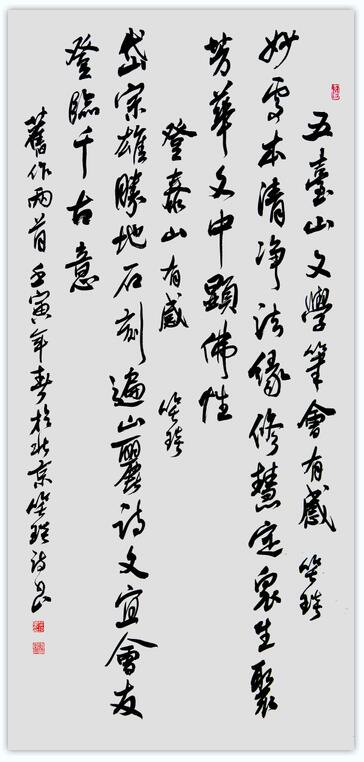 五臺山文學筆會有感 笑
妙本清净法緣修慧定衆生聚
芳華文中顯佛性
登泰山有感 笑
岱宗雄勝地石刻遍山麗詩文宜會友
登臨千古意
舊作兩首壬寅年春於北京笑詩